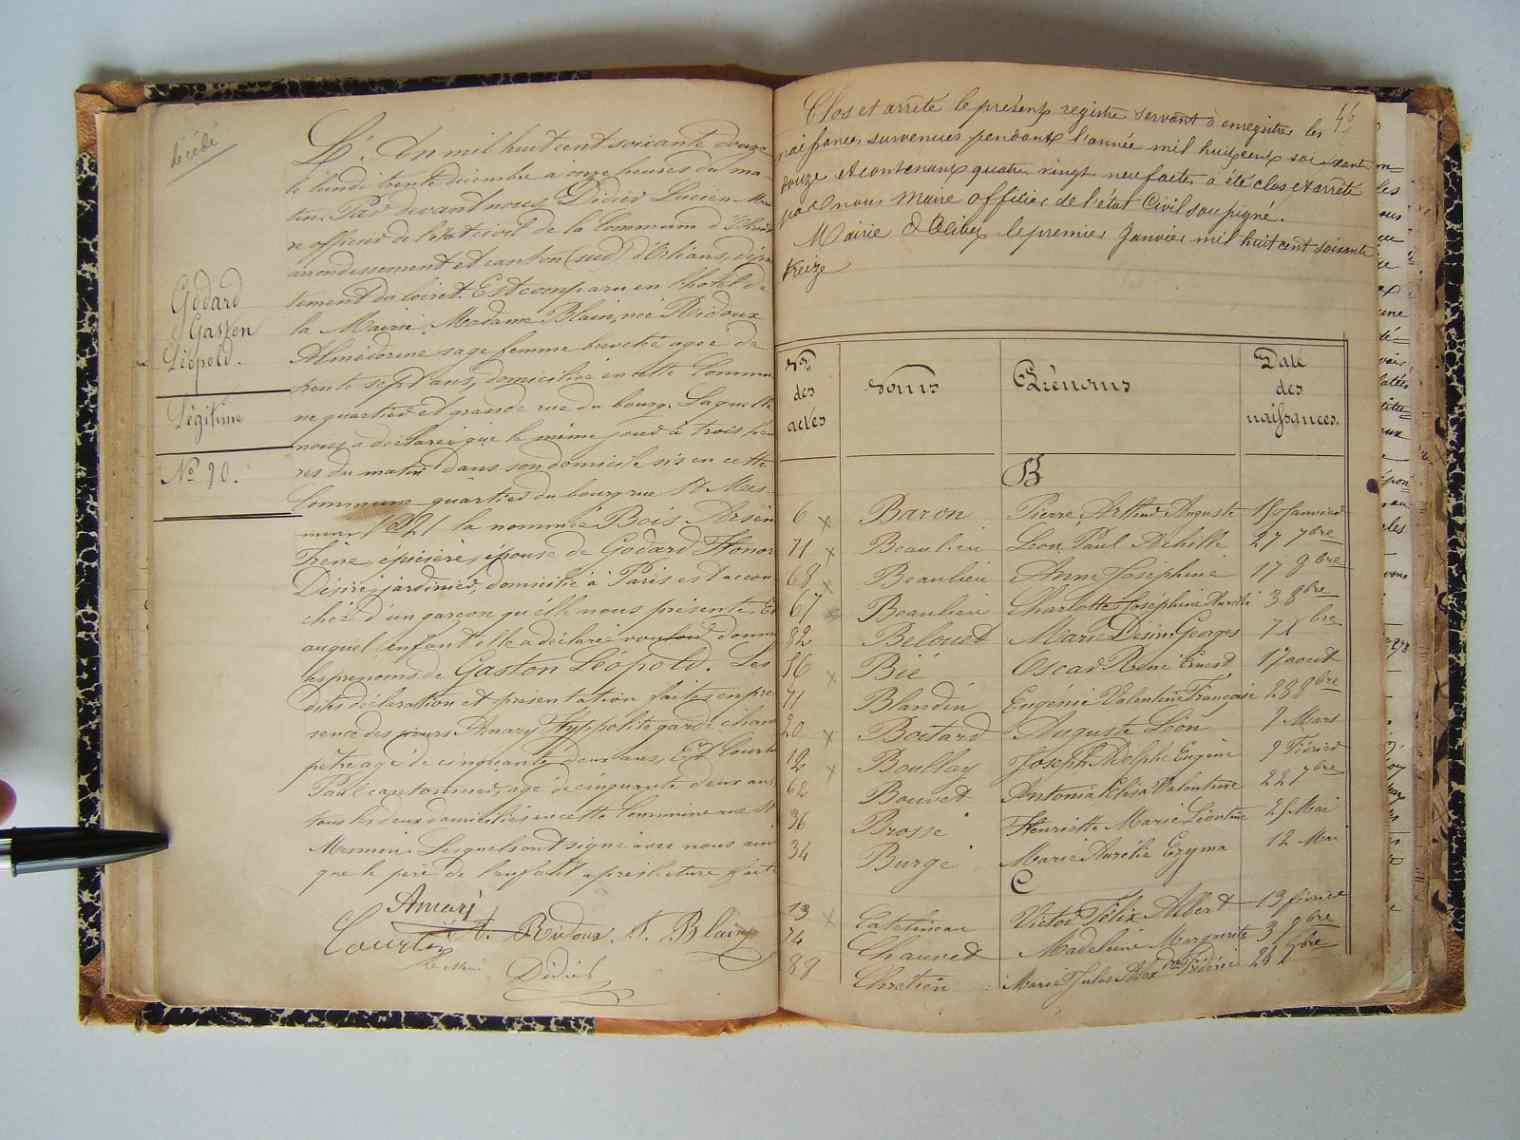 décédé
Godard
Gaston
Léopold.
Légitime
No 90.
L'An mil huit cent soixante douze
le lundi trente décembre à onze heures du ma
tin. Par devant nous Didier Lucien Mai
re officier de l'état civil de la Commune d'Olivet
arrondissement et canton (sud) d'Orléans, dépar
tement du Loiret. Est comparu en l'hotel de
la Mairie. Madame Blain, née Ridoux
sage femme agée de
trente sept ans, domiciliée en cette Commu
ne quartier et grande rue du bourg. Laquelle
nous a déclaré que le même jour à trois heu
res du matin dans son domicile sis en cette
Commune quartier du bourg rue St Mes
min la nommée Bois Arsène
Irène épicière, épouse de Godard Honor
Désiré, jardinier, domicilié à Paris est accou
chée d'un garçon qu'elle nous présente. Et
auquel enfant elle a déclaré vouloir donner
les prénoms de Gaston Léopold. Les
dites déclaration et présentation faites en pré
sence des sieurs Amary Hyppolite garde cham
pêtre agé de cinquante deux ans, Et Courtin
Paul cantonnier, agé de cinquante deux ans
tous les deux domiciliés en cette Commune rue St
Mesmin. Lesquels ont signé avec nous ainsi
que le père de l'enfant après lecture faite
Amary
Courtin A. Ridoux. F. Blain
le Maire Didier
Clos et arrêté le présent registre servant à enregistrer les
naissances survenues pendant l'année mil huit cent soixante
douze et contenant quatre vingt neuf actes a été clos et arrêté
par nous Maire officier de l'état Civil soussigné.
Mairie d'Olivet le premier Janvier mil huit cent soixante
treize
Nos des actes | Noms | Prénoms | Date des naissances.
B
6 x Baron Pierre Arthur Auguste 19 Janvier
71 x Beaulieu Léon Paul Achille 27 7bre
68 x Beaulieu Anne Joséphine 17 9bre
67 Beaulieu Charlotte Joséphine 3 8bre
82 Belouet Marie Désiré Georges 7 Xbre
56 x Bié Oscar René Ernest 17 aout
71 Blandin Eugénie Valentine Françoise 28 8bre
20 x Boitard Auguste Léon 9 Mars
12 x Boullay Joseph Adolphe Eugène 9 Février
62 Bouvet Antonia Elisa Valentine 22 7bre
36 Brosse Henriette Marie Léontine 25 Mai
34 Burge Marie Aurélie 12 Mai
C
13 x Catelineau Victor Félix Albert 13 février
74 Chauvet Madeleine Marguerite 3 9bre
89 Chrétien Marie Jules Frédéric 26 Xbre